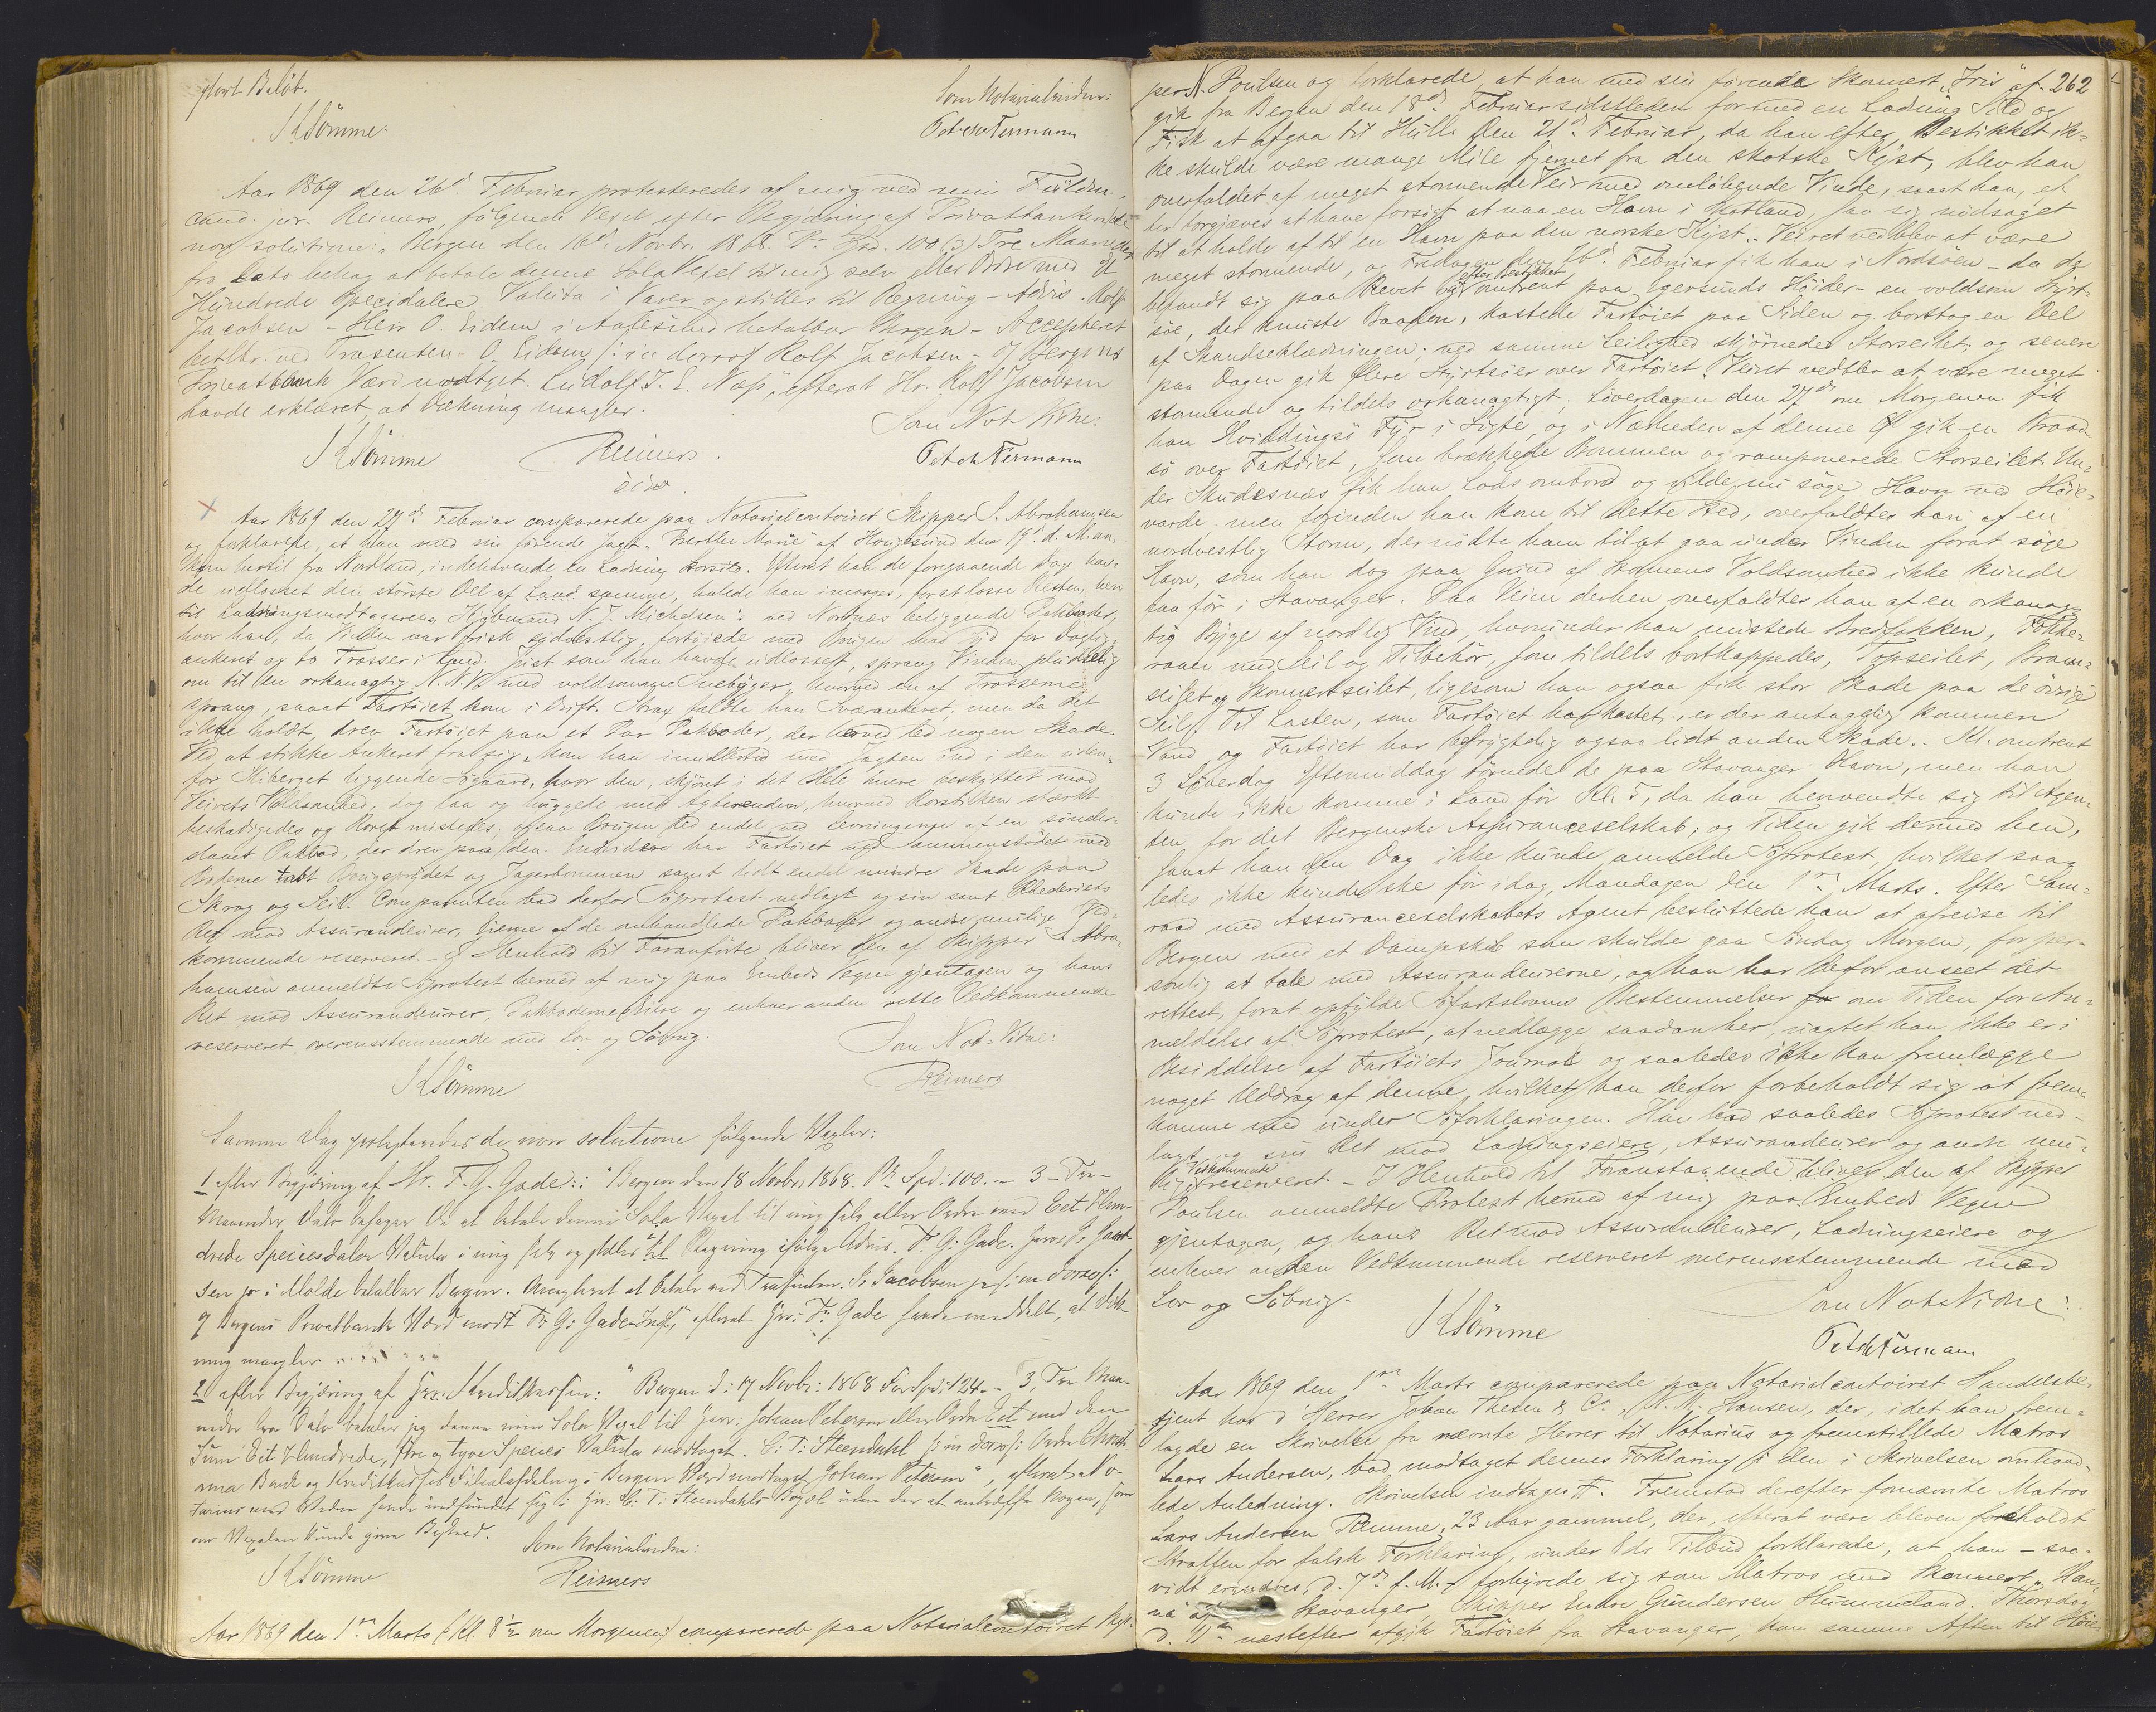 ført Beløb.
Som Notarialvidner:
J Klömme.
Petch Fermann
Aar 1869 den 26d. Februar protesteredes af mig ved min Fuldm.
cand. jur. Reimers, følgende Vexel efter Begjæring af Privatbanken de
non solutione: „Bergen den 16d. Novbr. 1868. Pr. Spd. 100 (3) Tre Maaneder
fra Dato behag at betale denne Sola Vexel til mig selv eller Ordre med Et
Hundrede Speciedalere Valuta i Varer og stilles til Regning – Advis. Rolf
Jacobsen – Herr O. Eidem i Aalesund betalbar Bergen – Accepteret
betlbr. ved Trasenten – O. Eidem /: in dorso /: Rolf Jacobsen – Bergens
Privatbank Værd modtget. Ludolf J. E. Næss", efterat Hr. Rolf Jacobsen
havde erklæret, at Dækning mangler.
Som Not. Vidne:
J Klömme
Reimers.
Petch Fermann
Aar 1869 den 27d. Februar comparerede paa Notarialcontoiret Skipper S. Abrahamsen
og forklarede, at han med sin førende Jagt „Berthe Marie" af Haugesund den 19d. d. M. an-
kom hertil fra Nordland, indehavende en Ladning Storsild. Efterat han de foregaaende Dage hav-
de udlosset den største Del af samme, halede han imorges, for at losse Resten, hen
til Ladningsmodtageren, Kjøbmand N. J. Michelsen's ved Nordnæs beliggende Pakboder,
hvor han, da Vinden var frisk sydvestlig, fortøiede med Brygen med for Dagligt-
ankeret og to Trosser i Land. Just som han havde udlosset, sprang Vinden pludselig
om til en orkanagtig N.N.V. med voldsomme Snebyger, hvorved en af Trosserne
sprang, saaat Fartøiet kom i Drift. Strax faldte han Sværankeret, men da det
ikke holdt, drev Fartøiet paa et Par Pakboder, der herved led nogen Skade.
Ved at stikke Ankeret fra sig, kom han imidlertid med Jagten ind i den uden-
for Skiberget liggende Søgaard, hvor den, skjønt i det Hele mere beskyttet mod
Veirets Voldsomhed, dog laa og huggede med Agterenden, hvorved Rorstilken stærkt
beskadigedes og Roret mistedes, ogsaa Brygen led endel ved Levningerne af en sønder-
slaaet Pakbod, der drev paa den. Endvidere har Fartøiet ved Sammenstødet med
Boderne tabt Bougsprydet og Jagerbommen samt lidt endel mindre Skade paa
Skrog og Seil. Comparenten bad derfor Søprotest nedlagt og sin samt Rhederiets
Ret mod Assurandeurer, Eierne af de omhandlede Pakboder og andre mulige Ved-
kommende reserveret. – I Henhold til Foranførte bliver den af Skipper S Abra-
hamsen anmeldte Søprotest herved af mig paa Embeds Vegne gjentagen og hans
Ret mod Assurandeurer, Pakbodernes Eiere og enhver anden rette Vedkommende
reserveret overensstemmende med Lov og Søbrug.
Som Not. Vidne:
J Klömme
Reimers
Samme Dag protesteredes de non solutione følgende Vexler:
1 efter Begjæring af Hr. F. G. Gade: „Bergen den 18 Novbr. 1868. Pr. Spd: 100. – 3 – Tre –
Maaneder Dato behager De at betale denne Sola Vexel til mig selv eller Ordre med Eet Hun-
drede Speciesdaler Valuta i mig selv og stilles til Regning ifølge Advis. F. G. Gade. Herr P. Jacob-
sen jr i Molde betalbar Bergen. Accepteret at betale ved Trasenten. P. Jacobsen jr /: in dorso /:
Bergens Privatbank Værd modt. F. G. Gade", efterat Hr. F. Gade havde meddelt, at Dæk-
ning mangler
2 efter Begjæring af Kreditkassen: „Bergen d: 17 Novbr: 1868 For Spd: 124. – 3, Tre Maa-
neder fra Dato betaler jeg denne min Sola Vexel til Herr: Johan Petersen eller Ordre Eet med den
Sum Eet Hundrede, fire og tyve Species Valuta modtaget. C: T: Steendahl /: in dorso /: Ordre Christi-
ania Bank og Kreditkasses Filialafdeling i Bergen Værd modtaget Johan Petersen", efterat No-
tarius med Vidne havde indfundet sig i Hr. C: T: Steendahls Bopæl uden der at antræffe Nogen, som
om Vexelen kunde give Besked.
Som Notarialvidne:
J Klömme
Reimers
Aar 1869 den 1ste Marts (Kl. 8½ om Morgenen) comparerede paa Notarialcontoiret Skip-
262
per N. Poulsen og forklarede, at han med sin førende Skonnert „Iris" af
gik fra Bergen den 18d. Februar sidstleden for med en Ladning Sild og
Fisk at afgaa til Hull. Den 21d. Februar, da han efter Bestikket ik-
ke skulde være mange Mile fjernet fra den skotske Kyst, blev han
overfaldet af meget stormende Veir med omløbende Vinde, saaat han, ef-
ter forgjæves at have forsøgt at naa en Havn i Skotland, saa sig nødsaget
til at holde af til en Havn paa den norske Kyst. Veiret vedblev at være
meget stormende, og Fredagen den 26d. Februar fik han i Nordsøen – da de
befandt sig paa Revet og efter Bestikket omtrent paa Egersunds Høider – en voldsom Styrt-
søe, der knuste Baaden, kastede Fartøiet paa Siden og borttog en Del
af Skandseklædningen; ved samme Leilighed skjørnedes Storseilet, og senere
paa Dagen gik flere Styrtsøer over Fartøiet. Veiret vedblev at være meget
stormende og tildels orkanagtigt. Løverdagen den 27d. om Morgenen fik
han Hvidingsø Fyr i Sigte, og i Nærheden af denne Ø gik en Braad-
sø over Fartøiet, som brækkede Bommen og ramponerede Storseilet. Un-
der Skudesnæs fik han Lods ombord og vilde nu søge Havn ved Høie-
varde, men forinden han kom til dette Sted, overfaldtes han af en
nordvestlig Storm, der nødte ham til at gaa under Vinden forat søge
Havn, som han dog paa Grund af Stormens Voldsomhed ikke kunde
naa før i Stavanger. Paa Veien derhen overfaldtes han af en orkanag-
tig Byge af nordlig Vind, hvorunder han mistede Bredfokken, Fokke-
raaen med Seil og Tilbehør, som tildels bortkappedes, Topseilet, Bram-
seilet og Skonnertseilet, ligesom han ogsaa fik stor Skade paa de øvrige
Seil. Til Lasten, som Fartøiet har kastet, er der antagelig kommen
Vand og Fartøiet har befrygtelig ogsaa lidt anden Skade. – Kl. omtrent
3 Løverdag Eftermiddag tørnede de paa Stavanger Havn, men han
kunde ikke komme i Land før Kl. 5, da han henvendte sig til Agen-
ten for det Bergenske Assuranceselskab, og Tiden gik dermed hen,
saaat han den Dag ikke kunde anmelde Søprotest, hvilket saa-
ledes ikke kunde ske før idag, Mandagen den 1ste Marts. Efter Sam-
raad med Assuranceselskabets Agent besluttede han at afreise til
Bergen med et Dampskib som skulde gaa Søndag Morgen, for per-
sonlig at tale med Assurandeurerne, og han har derfor anseet det
rettest, forat opfylde Søfartslovens Bestemmelser om Tiden for An-
meldelse af Søprotest, at nedlægge saadan her, uagtet han ikke er i
Besiddelse af Fartøiets Journal og saaledes ikke kan fremlægge
noget Uddrag af denne, hvilket han derfor forbeholdt sig at frem-
komme med under Søforklaringen. Han bad saaledes Søprotest ned-
lagt og sin Ret mod Ladningseiere, Assurandeurer og andre mu-
lige Vedkommende reserveret. – I Henhold til Foranstaaende bliver den af Skipper
Poulsen anmeldte Protest herved af mig paa Embeds Vegne
gjentagen, og hans Ret mod Assurandeurer, Ladningseiere og
enhver anden Vedkommende reserveret overensstemmende med
Lov og Søbrug.
Som Nots Vidne:
J Klömme
Petch Fermann
Aar 1869 den 1ste Marts comparerede paa Notarialcontoiret Handelsbe-
tjent hos d'Herrer Johan Thesen & Co., M. M. Hansen, der, idet han frem-
lagde en Skrivelse fra nævnte Herrer til Notarius og fremstillede Matros
Lars Andersen, bad modtaget dennes Forklaring i den i Skrivelsen omhand-
lede Anledning. Skrivelsen indtages #. Fremstod derefter fornævnte Matros
Lars Andersen Ramme, 23 Aar gammel, der, efterat være bleven foreholdt
Straffen for falsk Forklaring, under Eds Tilbud forklarede, at han – saa-
vidt erindres, d. 7d. f. M. – forhyrede sig som Matros med Skonnert „Han-
na" af Stavanger, Skipper Endre Gundersen Hummeland. Thorsdag
d. 11te næstefter afgik Fartøiet fra Stavanger, kom samme Aften til Høie-